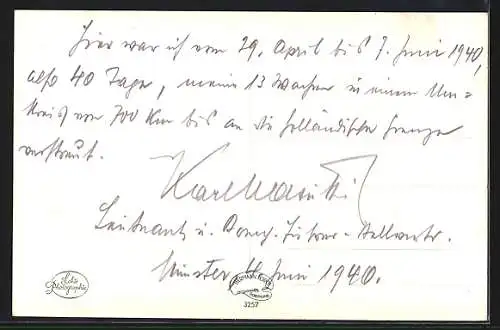 Hier war ich vom 29. April bis 7. Juni 1940,
also 40 Tage, meine 13 Wachen in einem Um=
kreis von 700 Km bis an die holländische Grenze
verstreut.
Karl
Leutnant u. Komp. Führer-Stellvertr.
Münster, 4. Juni 1940.
Echte
Photographie
3257